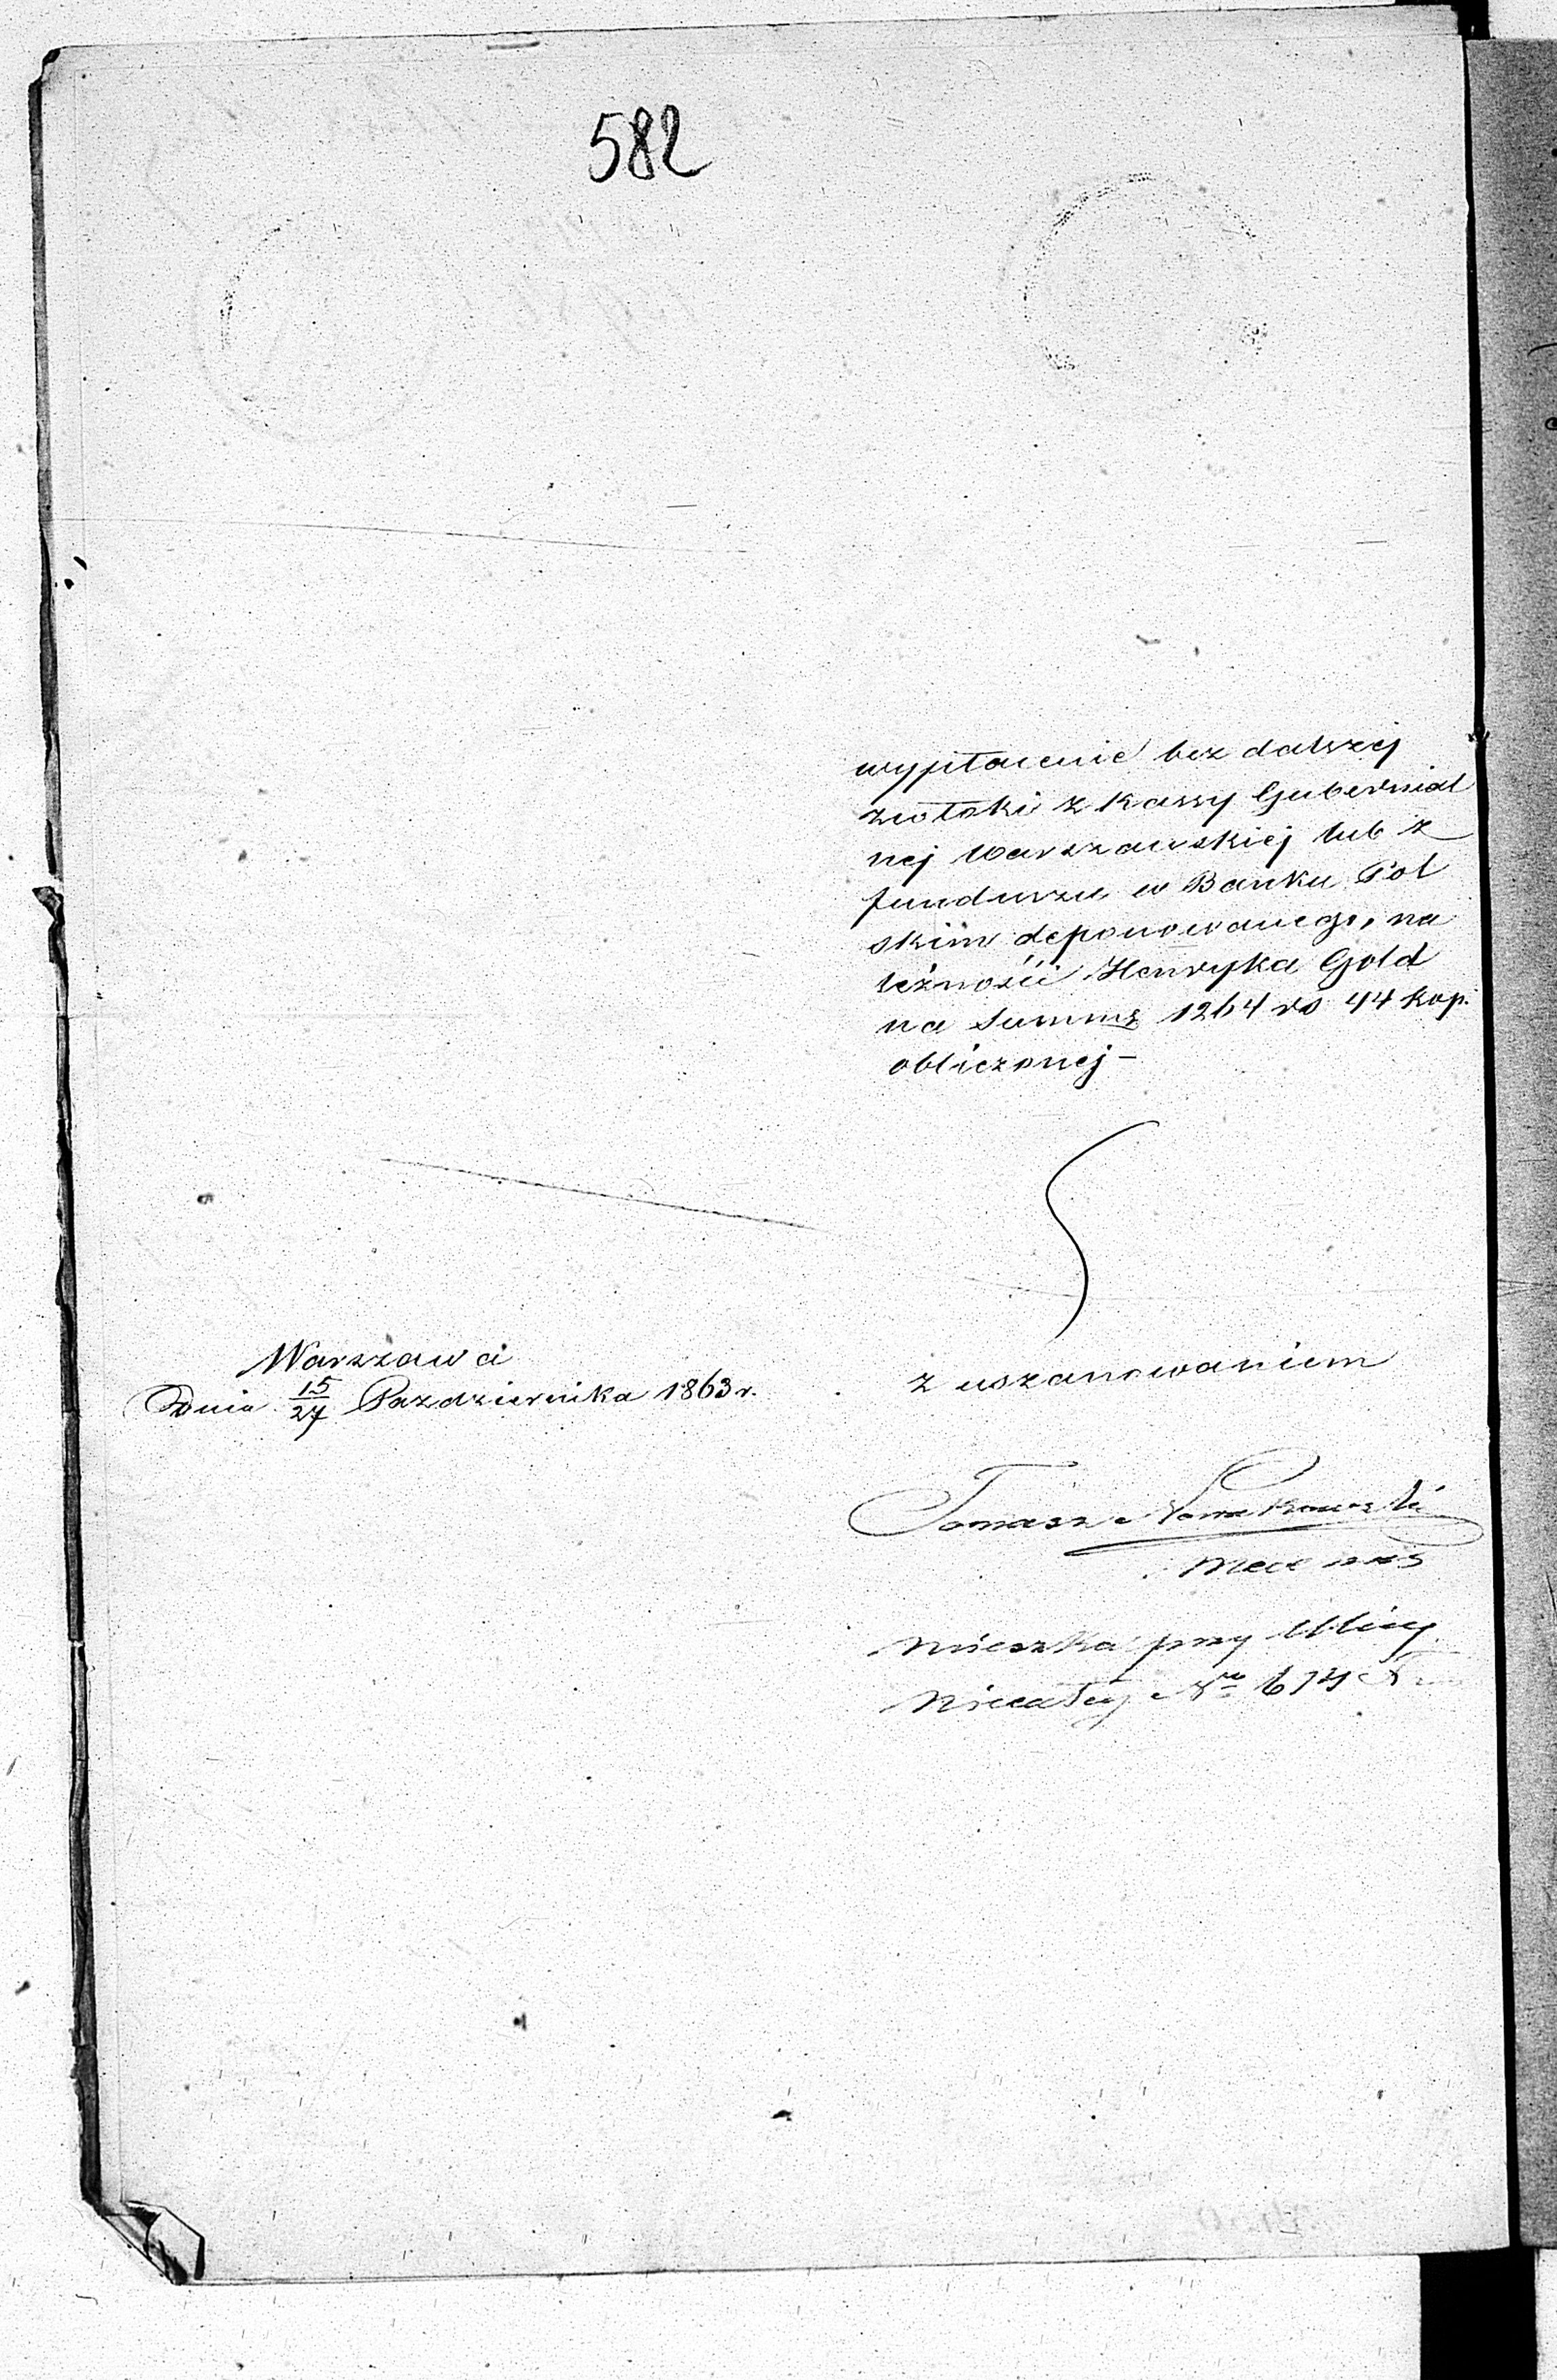 582
wypłacenie bez dalszej
zwłoki z Kassy Gubernial
nej Warszawskiej lub z
funduszu w Banku Pol
skim deponowanego, na
leżności Henryka Gold
na Summę 1264 rs 44 kop.
obliczonej –
Warszawa
Dnia 15/27 Pazdziernika 1863 r.
z uszanowaniem
Tomasz
Mecenas
mieszka przy Ulicy
Niecałej Nro 614